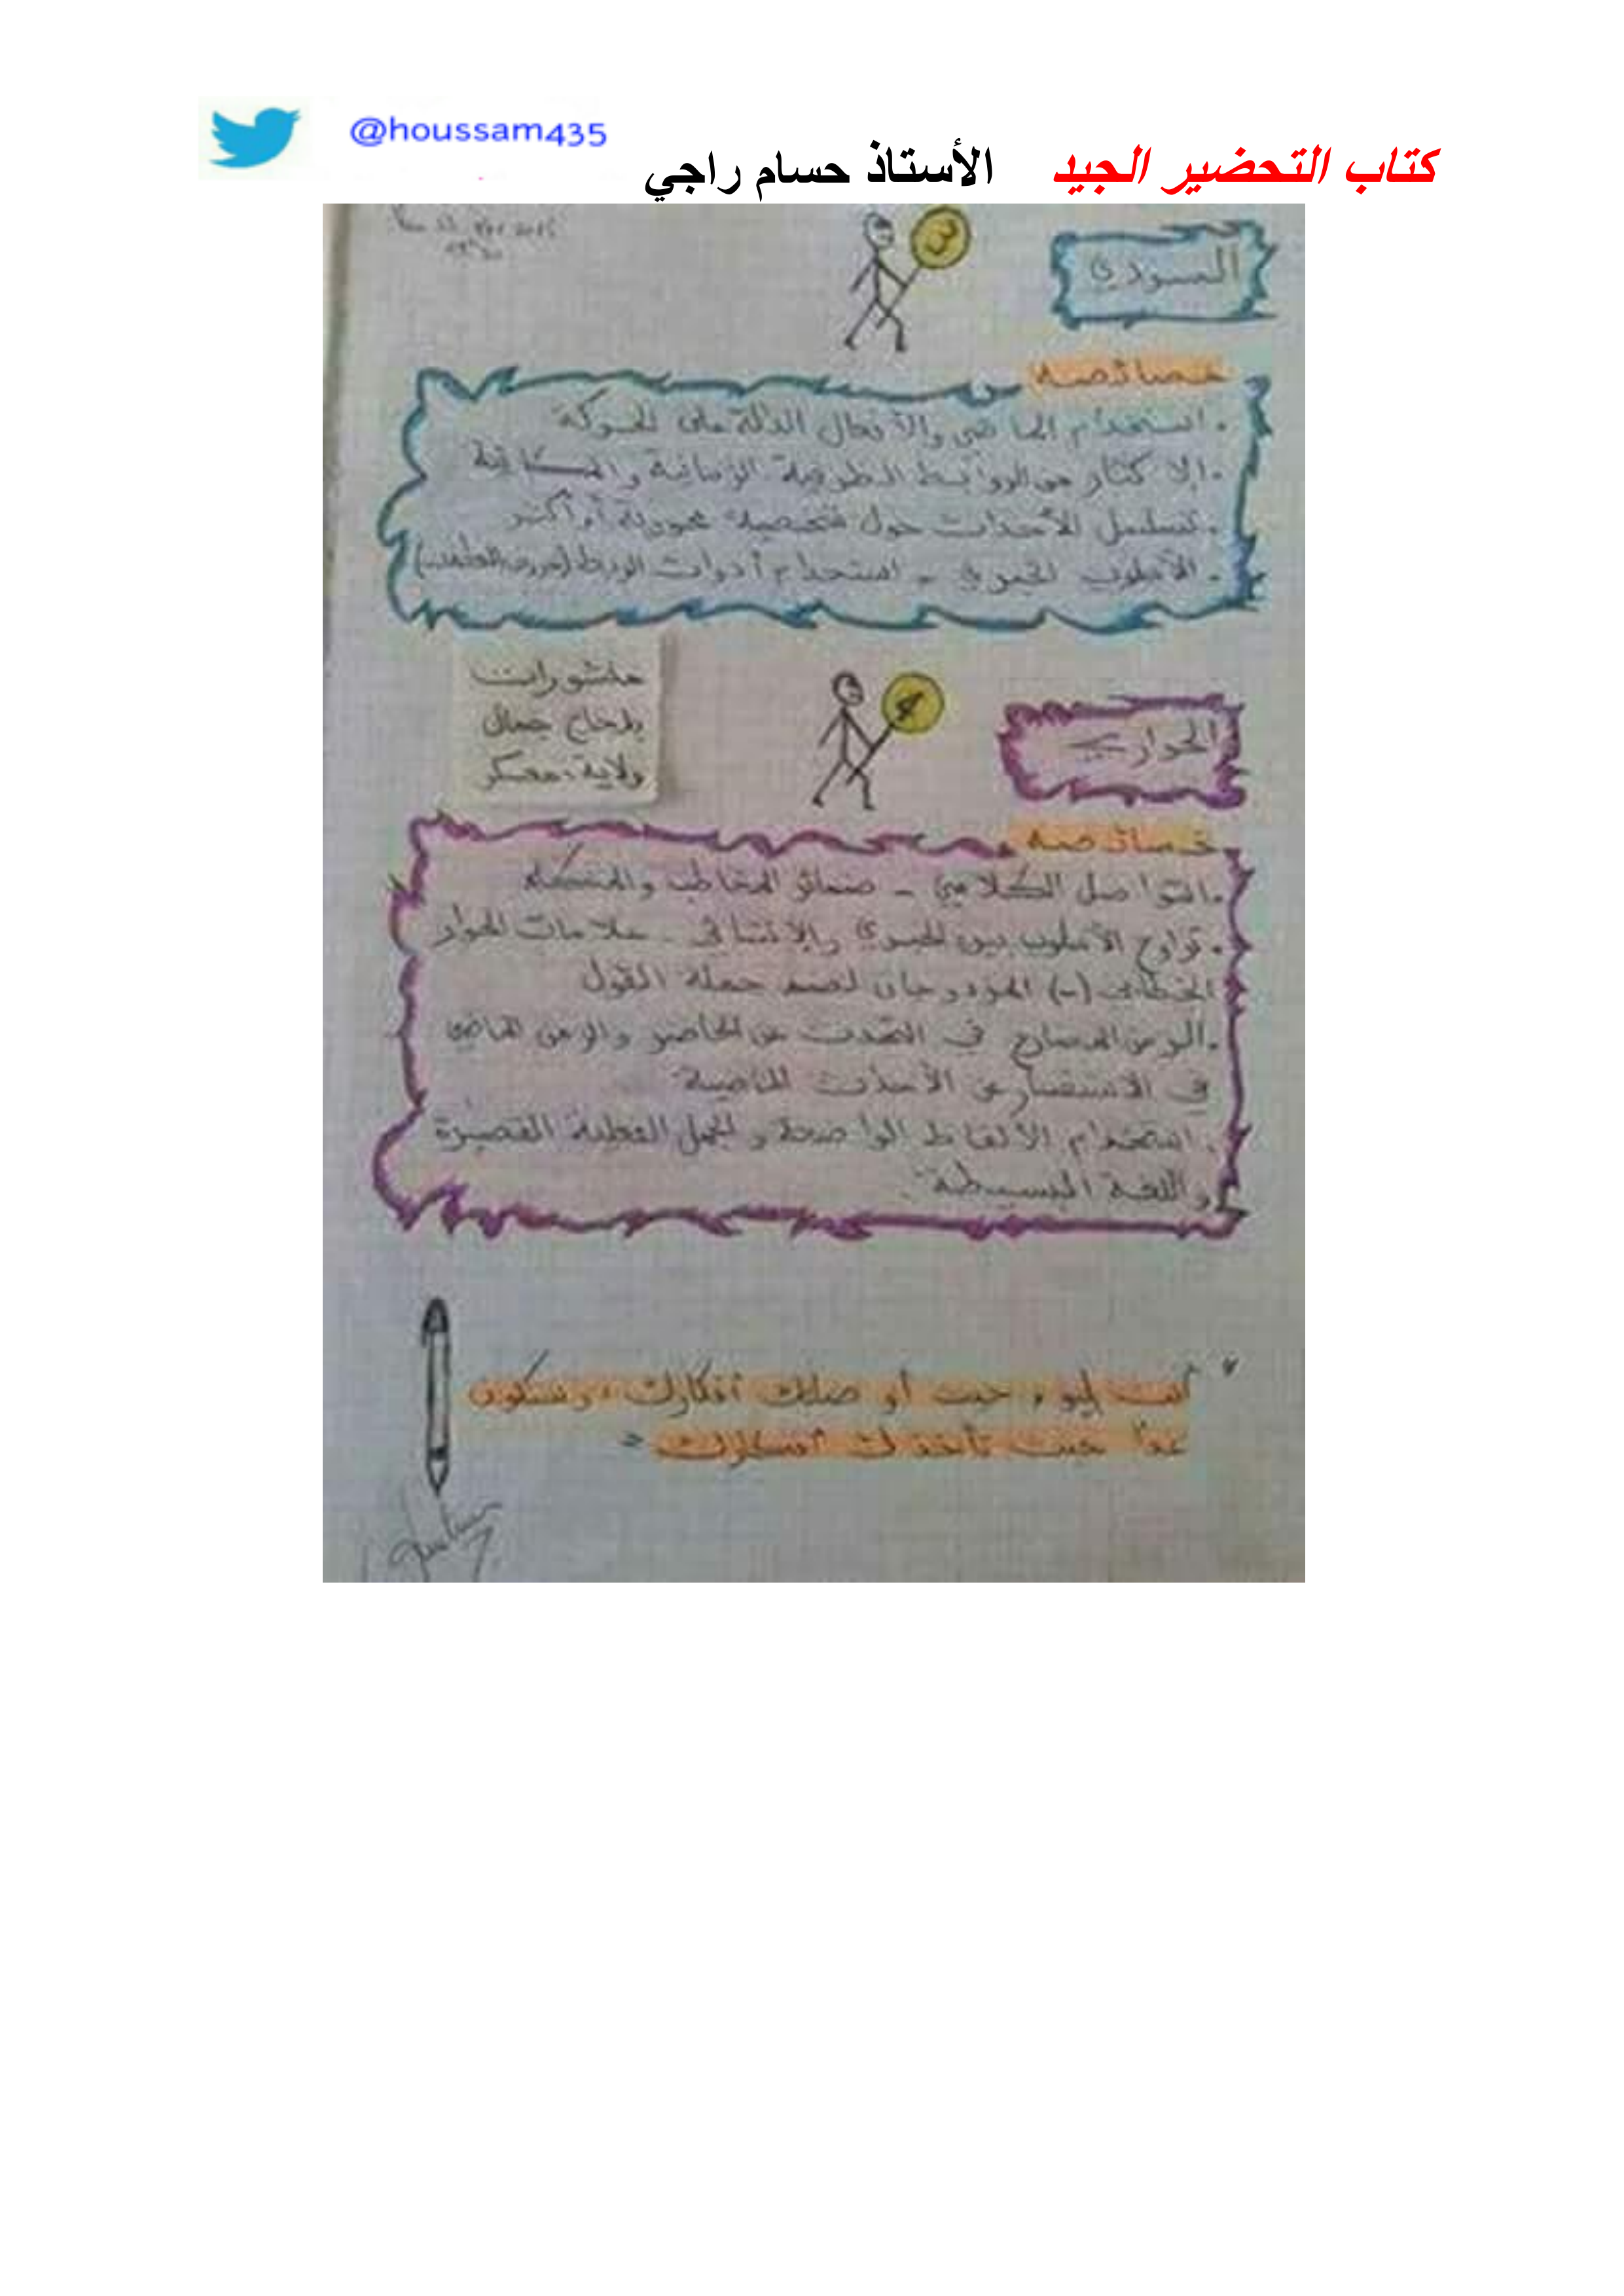 @houssam435
كتاب التحضير الجيد الأستاذ حسام راجي
3
السردي
خصائصه
. استخدام الماضي والأفعال الدالة على الحركة
. الإكثار من الروابط الظرفية الزمانية والمكانية
. تسلسل الأحداث حول شخصية محورية أو أكثر
. الأسلوب الخبري - استخدام أدوات الربط (حروف العطف..)
منشورات
بلحاج جمال
ولاية معسكر
4
الحواري
خصائصه
. التواصل الكلامي - ضمائر المخاطب والمتكلم
. تراوح الأسلوب بين الخبري والإنشائي - علامات الحوار
الخطابي (-) المزدوجان لضم جملة القول
. الزمن المضارع في التحدث عن الحاضر والزمن الماضي
في الاستفسار عن الأحداث الماضية
. استخدام الألفاظ الواضحة والجمل الفعلية القصيرة
واللغة البسيطة.
" أنت اليوم حيث أوصلتك أفكارك، وستكون
غدا حيث تأخذك أفكارك "